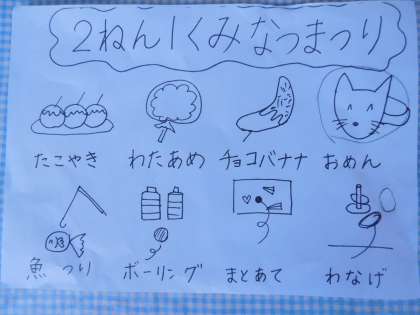 2ねん1くみなつまつり
たこやき わたあめ チョコバナナ おめん
魚つり ボーリング まとあて わなげ